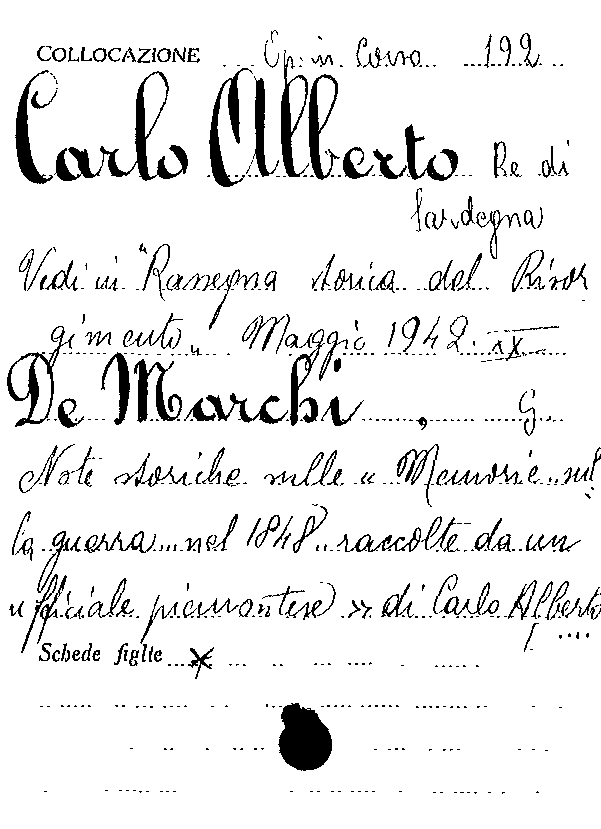 COLLOCAZIONE Ep. in Corso 192
Carlo Alberto Re di
Sardegna
Vedi in "Rassegna storica del Risor
gimento„ Maggio 1942. XX
De Marchi, G.
Note storiche sulle « Memorie sul
la guerra nel 1848 raccolte da un
ufficiale piemontese » di Carlo Alberto
Schede figlie x